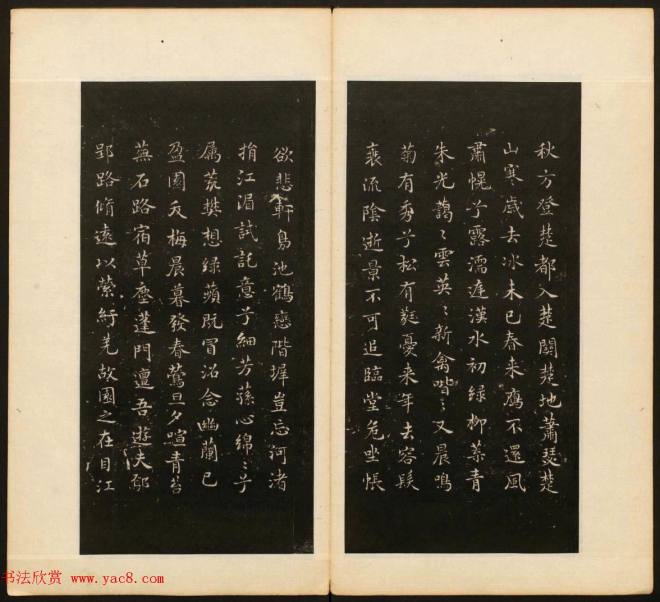 秋方登楚都入楚關楚地蕭瑟楚
山寒歲去冰未已春来鴈不還風
肅幌兮露濡庭漢水初緑柳葉青
朱光藹〻雲英〻新禽喈〻又晨鳴
菊有秀兮松有蕤憂来年去容髮
衰流陰逝景不可追臨堂危坐悵
欲悲軒鳥池鶴戀階墀豈忘河渚
捐江湄試託意兮細芳蓀心綿〻兮
屬荒樊想緑蘋既冒沼念幽蘭已
盈園夭梅晨暮發春鶯旦夕喧青苔
蕪石路宿草塵蓬門邅吾遊夫鄢
郢路脩遠以縈紆羌故園之在目江
书法欣赏 www.yac8.com